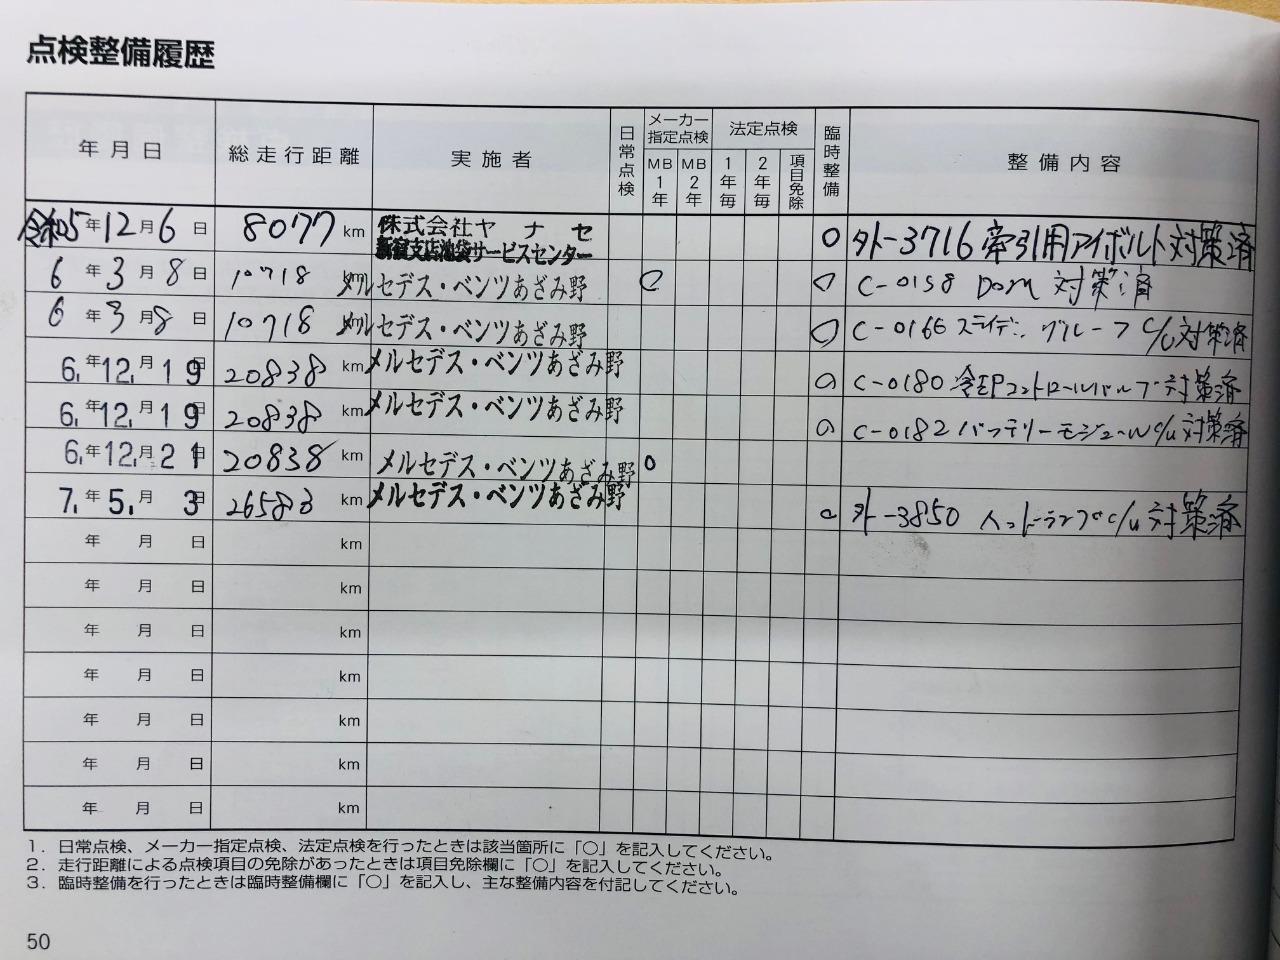 点検整備履歴
年月日 総走行距離 実施者 日常点検 メーカー指定点検 MB1年 MB2年 法定点検 1年毎 2年毎 項目免除 臨時整備 整備内容
令和5年12月6日 8077km 株式会社ヤナセ 新宿支店池袋サービスセンター ○ 外-3716 牽引用アイボルト対策済
6年3月8日 10718km メルセデス・ベンツあざみ野 ○ ○ C-0158 Dom 対策済
6年3月8日 10718km メルセデス・ベンツあざみ野 ○ C-0166 スライディングルーフ C/U対策済
6.年12.月19日 20838km メルセデス・ベンツあざみ野 ○ C-0180 コントロールバルブ対策済
6.年12.月19日 20838km メルセデス・ベンツあざみ野 ○ C-0182 バッテリーモジュールC/U対策済
6.年12.月21日 20838km メルセデス・ベンツあざみ野 ○
7.年5.月3日 26583km メルセデス・ベンツあざみ野 ○ 外-3850 C/U対策済
年 月 日 km
年 月 日 km
年 月 日 km
年 月 日 km
年 月 日 km
年 月 日 km
年 月 日 km
1. 日常点検、メーカー指定点検、法定点検を行ったときは該当箇所に「○」を記入してください。
2. 走行距離による点検項目の免除があったときは項目免除欄に「○」を記入してください。
3. 臨時整備を行ったときは臨時整備欄に「○」を記入し、主な整備内容を付記してください。
50